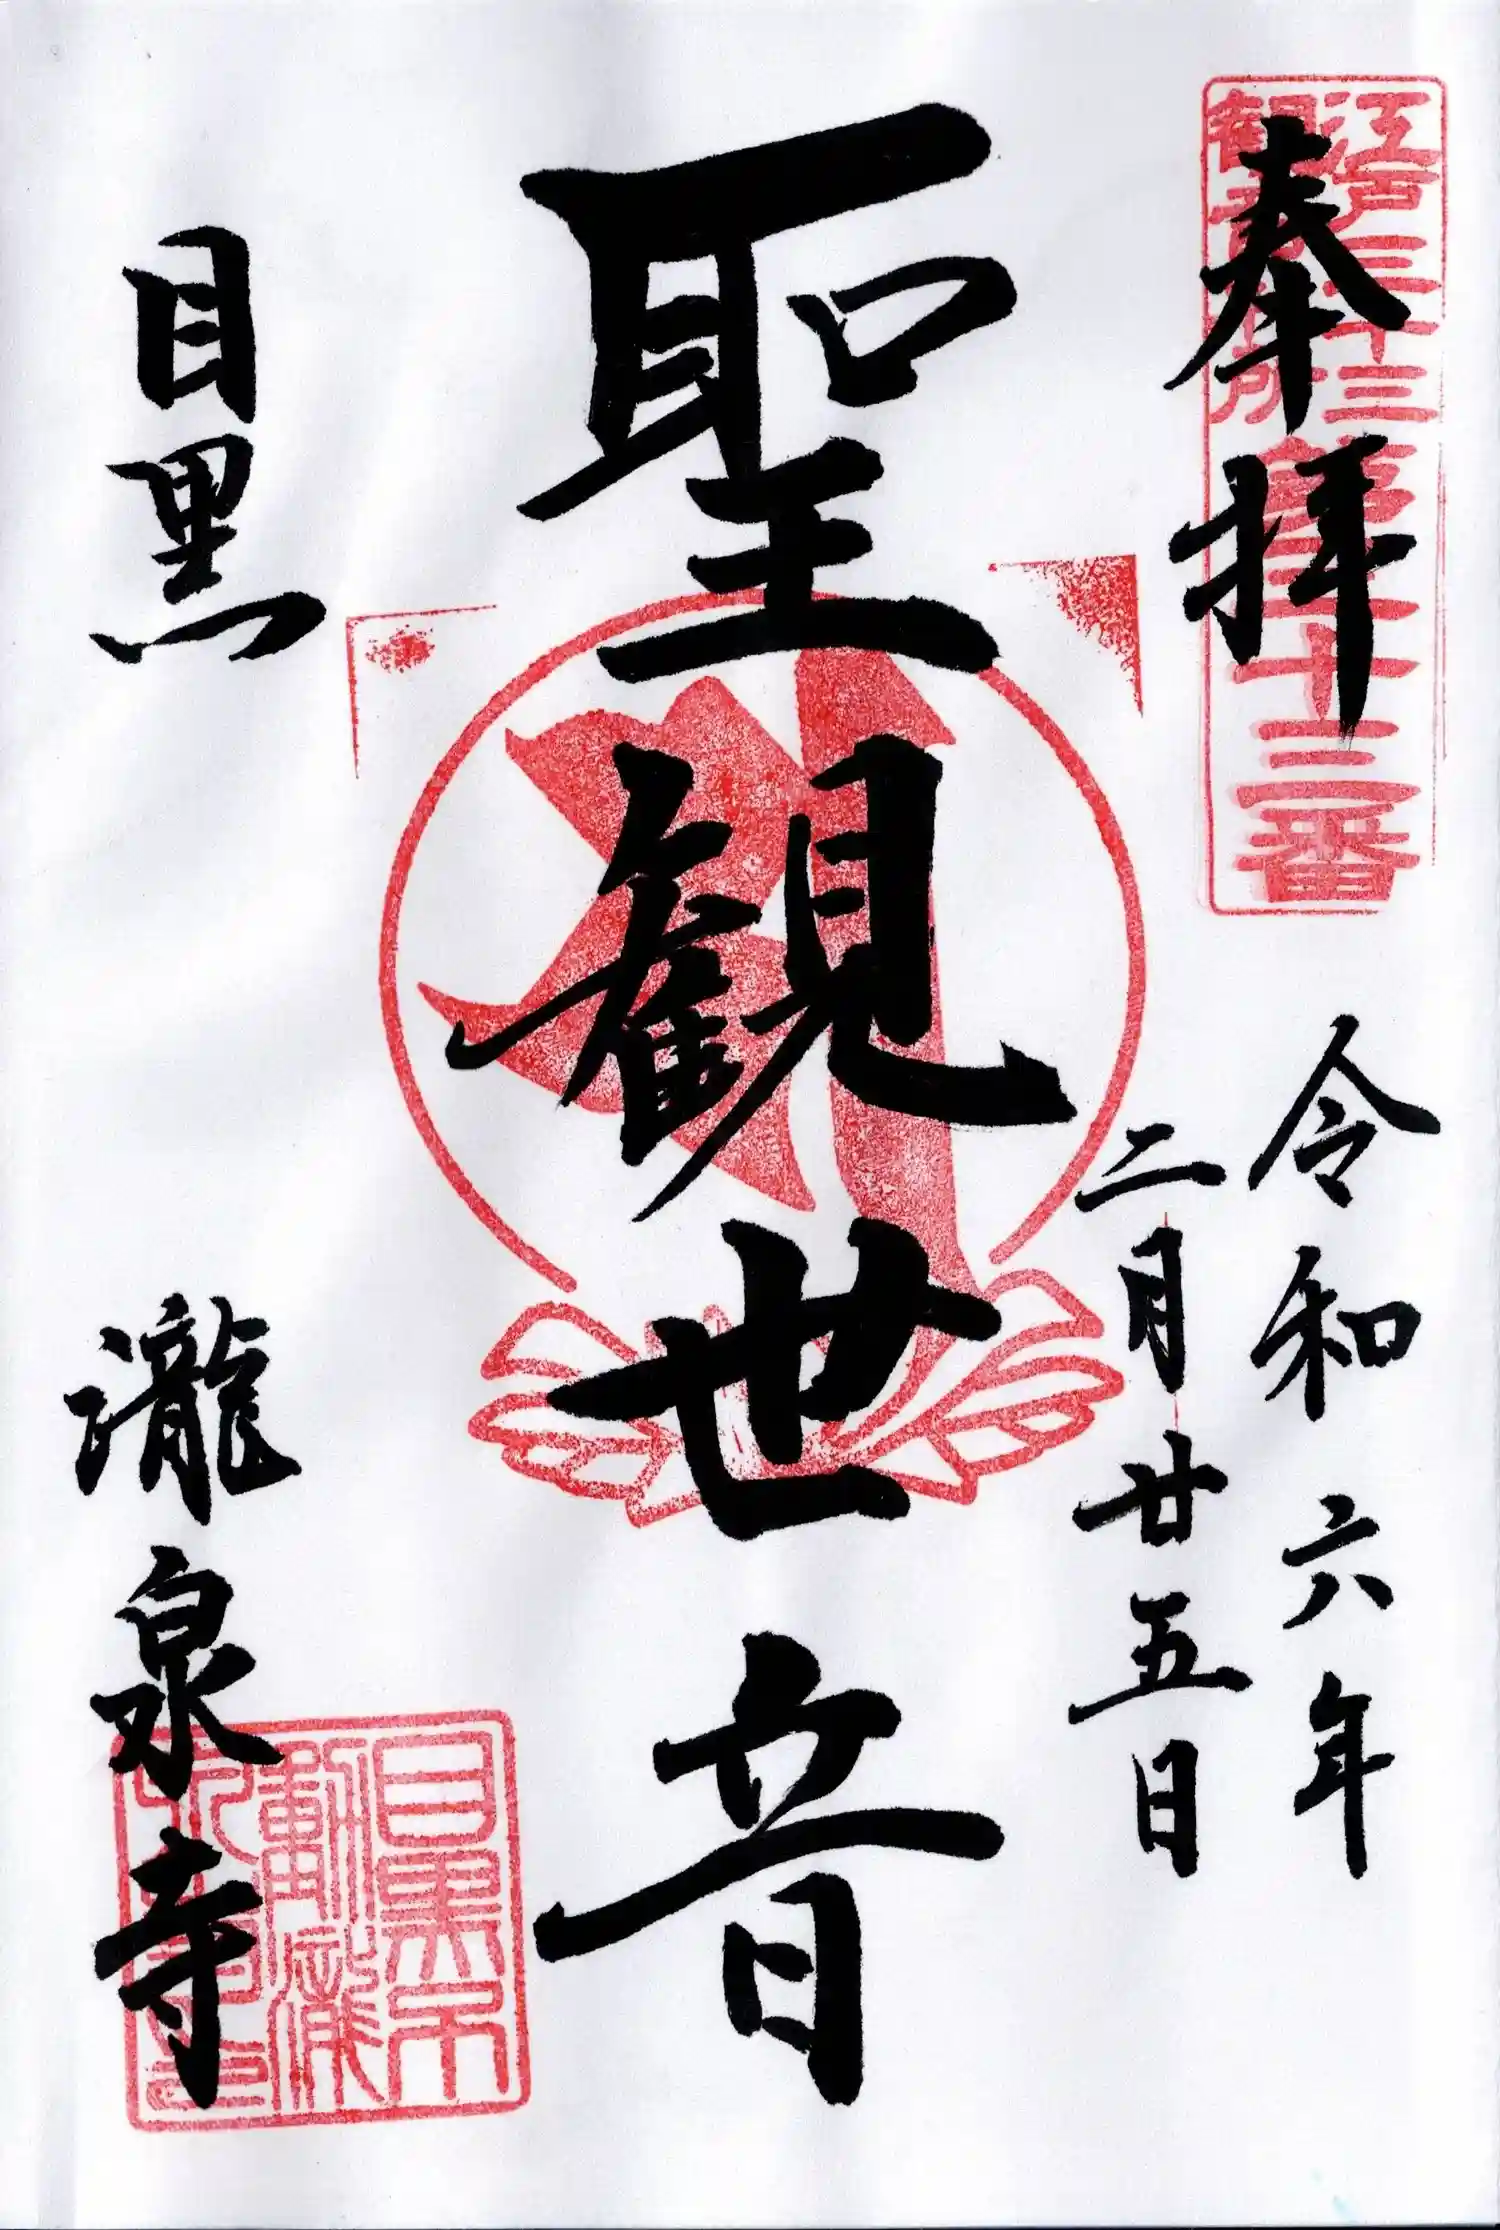 奉拝
江戸三十三
観音札所
第三十三番
令和六年
二月廿五日
聖観世音
目黒
瀧泉寺
目黒不
動瀧
泉寺